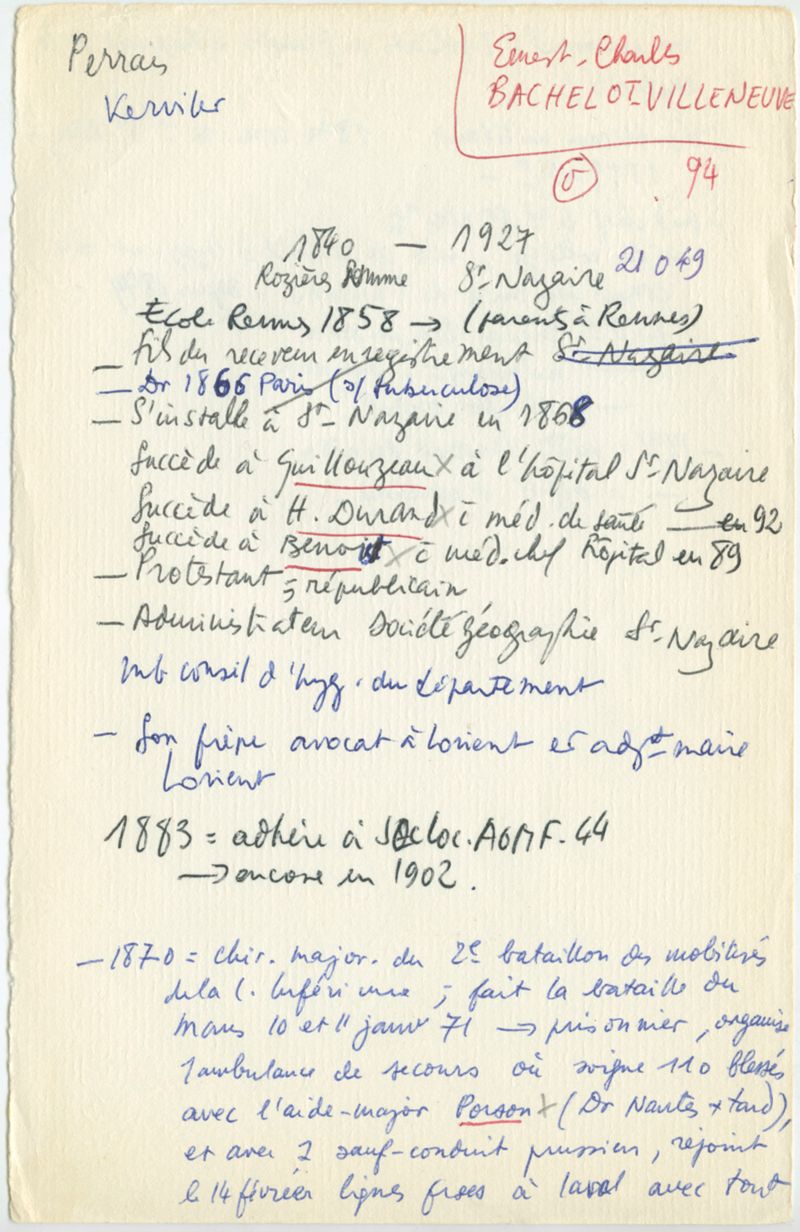 Perrais
Kerviler
Ernest-Charles
BACHELOT-VILLENEUVE
94
1840 — 1927
Rozières Somme St-Nazaire 21 049
Ecole Rennes 1858 → (parents à Rennes)
— Fils du receveur enregistrement St-Nazaire
— Dr 1866 Paris (s/ tuberculose)
— S'installe à St-Nazaire en 1868
Succède à Guillouzeau x à l'hôpital St-Nazaire
Succède à H. Durand x c̄ méd. de santé — en 92
Succède à Benoit x c̄ méd. chef hôpital en 89
— Protestant ; républicain
— Administrateur Société géographie St-Nazaire
mb conseil d'hyg. du département
— Son frère avocat à Lorient et adjt maire
Lorient
1883 = adhère à Soc loc. AGMF. 44
→ encore en 1902.
— 1870 = chir. major. du 2e bataillon des mobilisés
de la L. Inférieure ; fait la bataille du
Mans 10 et 11 janv 71 → prisonnier, organise
1 ambulance de secours où soigne 110 blessés
avec l'aide-major Porson x (Dr Nantes + tard),
et avec 1 sauf-conduit prussien, rejoint
le 14 février lignes frses à Laval avec tout